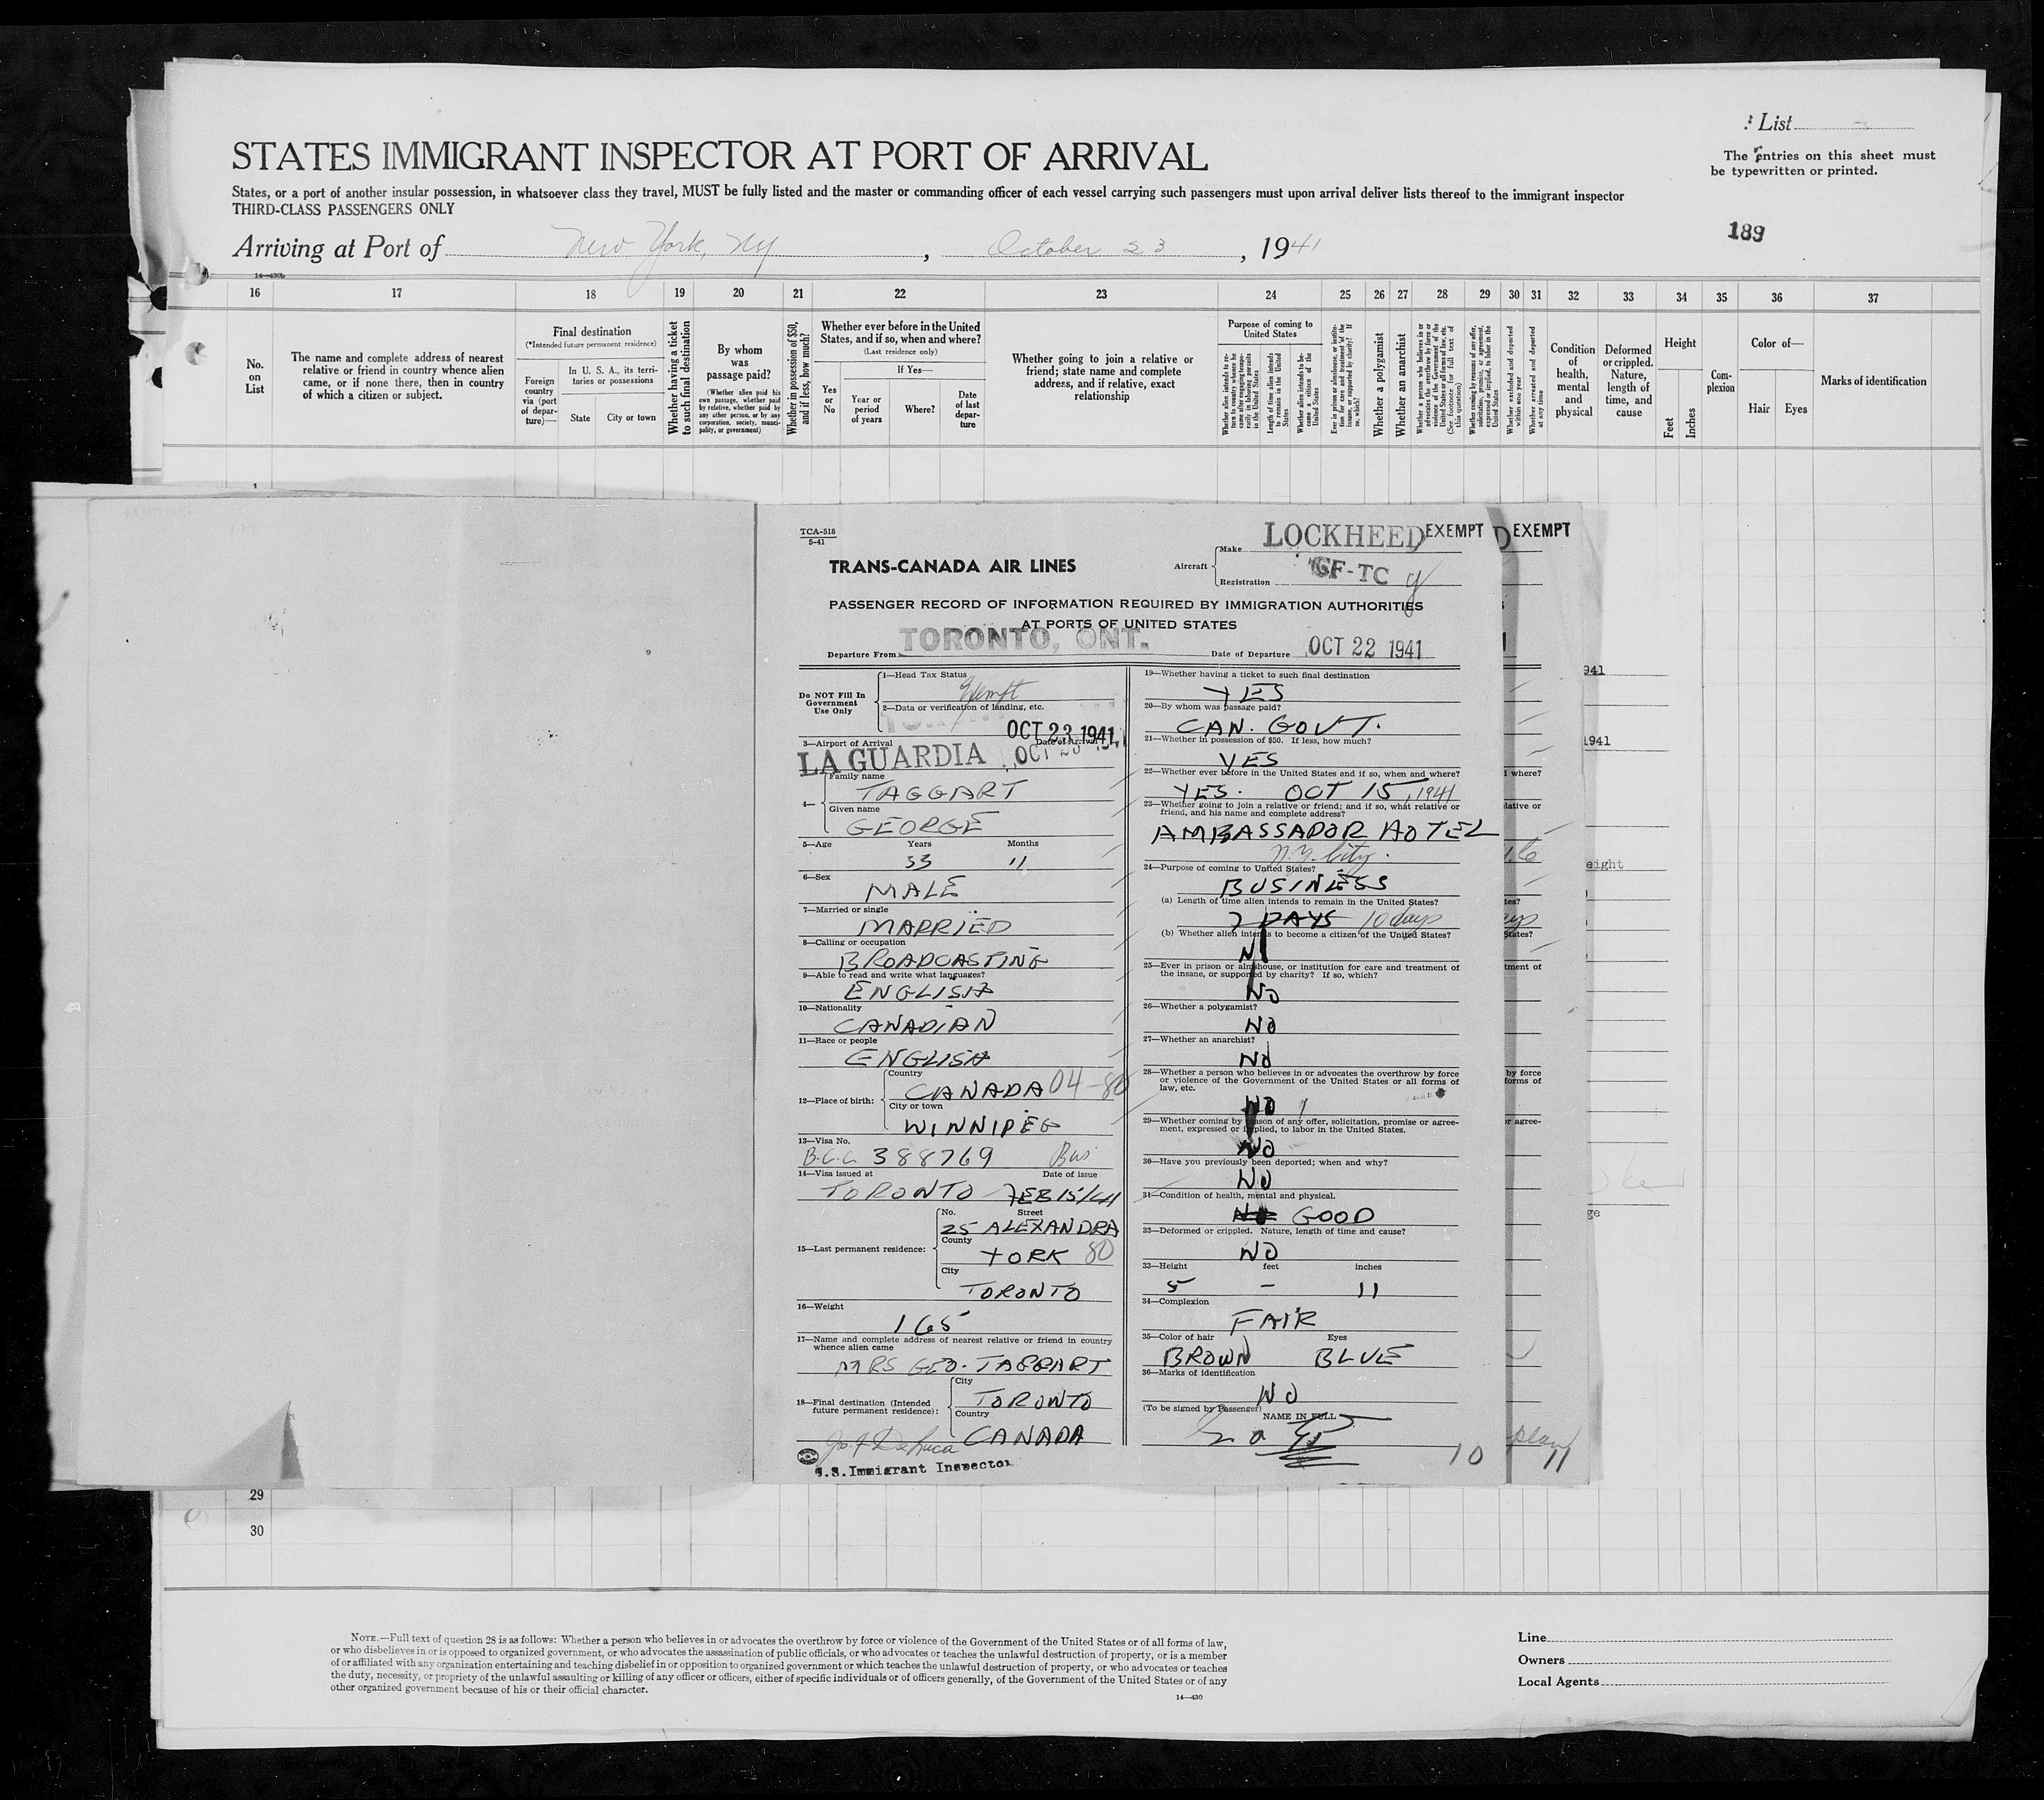 List
The entries on this sheet must
be typewritten or printed.
STATES IMMIGRANT INSPECTOR AT PORT OF ARRIVAL
States, or a port of another insular possession, in whatsoever class they travel, MUST be fully listed and the master or commanding officer of each vessel carrying such passengers must upon arrival deliver lists thereof to the immigrant inspector
THIRD-CLASS PASSENGERS ONLY
189
Arriving at Port of New York, NY, October 23, 1941
16 17 18 19 20 21 22 23 24 25 26 27 28 29 30 31 32 33 34 35 36 37
No. on List
The name and complete address of nearest relative or friend in country whence alien came, or if none there, then in country of which a citizen or subject.
Final destination
(*Intended future permanent residence)
Foreign country via (port of departure)—
In U. S. A., its territories or possessions
State
City or town
Whether having a ticket to such final destination
By whom was passage paid?
(Whether alien paid his own passage, whether paid by relative, whether paid by any other person, or by any corporation, society, municipality, or government)
Whether in possession of $50, and if less, how much?
Whether ever before in the United States, and if so, when and where?
(Last residence only)
Yes or No
If Yes—
Year or period of years
Where?
Date of last departure
Whether going to join a relative or friend; state name and complete address, and if relative, exact relationship
Purpose of coming to United States
Length of time alien intends to remain in the United States
Whether alien intends to become a citizen of the United States
Whether a polygamist
Whether an anarchist
Whether excluded and deported within one year
Whether arrested and deported at any time
Condition of health, mental and physical
Deformed or crippled. Nature, length of time, and cause
Height
Feet
Inches
Complexion
Color of—
Hair
Eyes
Marks of identification
TCA-518
5-41
TRANS-CANADA AIR LINES
Aircraft
Make LOCKHEED EXEMPT
D EXEMPT
Registration CF-TC
PASSENGER RECORD OF INFORMATION REQUIRED BY IMMIGRATION AUTHORITIES
AT PORTS OF UNITED STATES
Departure From TORONTO, ONT. Date of Departure OCT 22 1941
Do NOT Fill In Government Use Only
1—Head Tax Status
Exempt
2—Data or verification of landing, etc.
OCT 23 1941
3—Airport of Arrival
LA GUARDIA
Family name
4— TAGGART
Given name
GEORGE
5—Age Years Months
33 11
6—Sex
MALE
7—Married or single
MARRIED
8—Calling or occupation
BROADCASTING
9—Able to read and write what languages?
ENGLISH
10—Nationality
CANADIAN
11—Race or people
ENGLISH
12—Place of birth:
Country
CANADA 04-80
City or town
WINNIPEG
13—Visa No.
B.C.C. 388769 Bus
14—Visa issued at Date of issue
TORONTO FEB 15/41
15—Last permanent residence:
No. Street
25 ALEXANDRA
County
YORK 80
City
TORONTO
16—Weight
165
17—Name and complete address of nearest relative or friend in country
whence alien came
MRS GEO. TAGGART
18—Final destination (Intended
future permanent residence):
City
TORONTO
Country
CANADA
Jos. F. DeLuca
U.S. Immigrant Inspector
19—Whether having a ticket to such final destination
YES
20—By whom was passage paid?
CAN. GOVT.
21—Whether in possession of $50. If less, how much?
YES
22—Whether ever before in the United States and if so, when and where?
YES. OCT 15, 1941
23—Whether going to join a relative or friend; and if so, what relative or
friend, and his name and complete address?
AMBASSADOR HOTEL
N.Y. City.
24—Purpose of coming to United States?
BUSINESS
(a) Length of time alien intends to remain in the United States?
7 DAYS 10 days
(b) Whether alien intends to become a citizen of the United States?
NO
25—Ever in prison or almshouse, or institution for care and treatment of
the insane, or supported by charity? If so, which?
NO
26—Whether a polygamist?
NO
27—Whether an anarchist?
NO
28—Whether a person who believes in or advocates the overthrow by force
or violence of the Government of the United States or all forms of
law, etc.
NO
29—Whether coming by reason of any offer, solicitation, promise or agree-
ment, expressed or implied, to labor in the United States.
NO
30—Have you previously been deported; when and why?
NO
31—Condition of health, mental and physical.
GOOD
32—Deformed or crippled. Nature, length of time and cause?
NO
33—Height feet inches
5 - 11
34—Complexion
FAIR
35—Color of hair Eyes
BROWN BLUE
36—Marks of identification
NO
(To be signed by Passenger)
NAME IN FULL
10
11
941
where?
lative or
eight
tes?
States?
tment of
by force
forms of
r agree-
1941
29
30
NOTE.—Full text of question 28 is as follows: Whether a person who believes in or advocates the overthrow by force or violence of the Government of the United States or of all forms of law,
or who disbelieves in or is opposed to organized government, or who advocates the assassination of public officials, or who advocates or teaches the unlawful destruction of property, or is a member
of or affiliated with any organization entertaining and teaching disbelief in or opposition to organized government or which teaches the unlawful destruction of property, or who advocates or teaches
the duty, necessity, or propriety of the unlawful assaulting or killing of any officer or officers, either of specific individuals or of officers generally, of the Government of the United States or of any
other organized government because of his or their official character.
14—430
Line
Owners
Local Agents